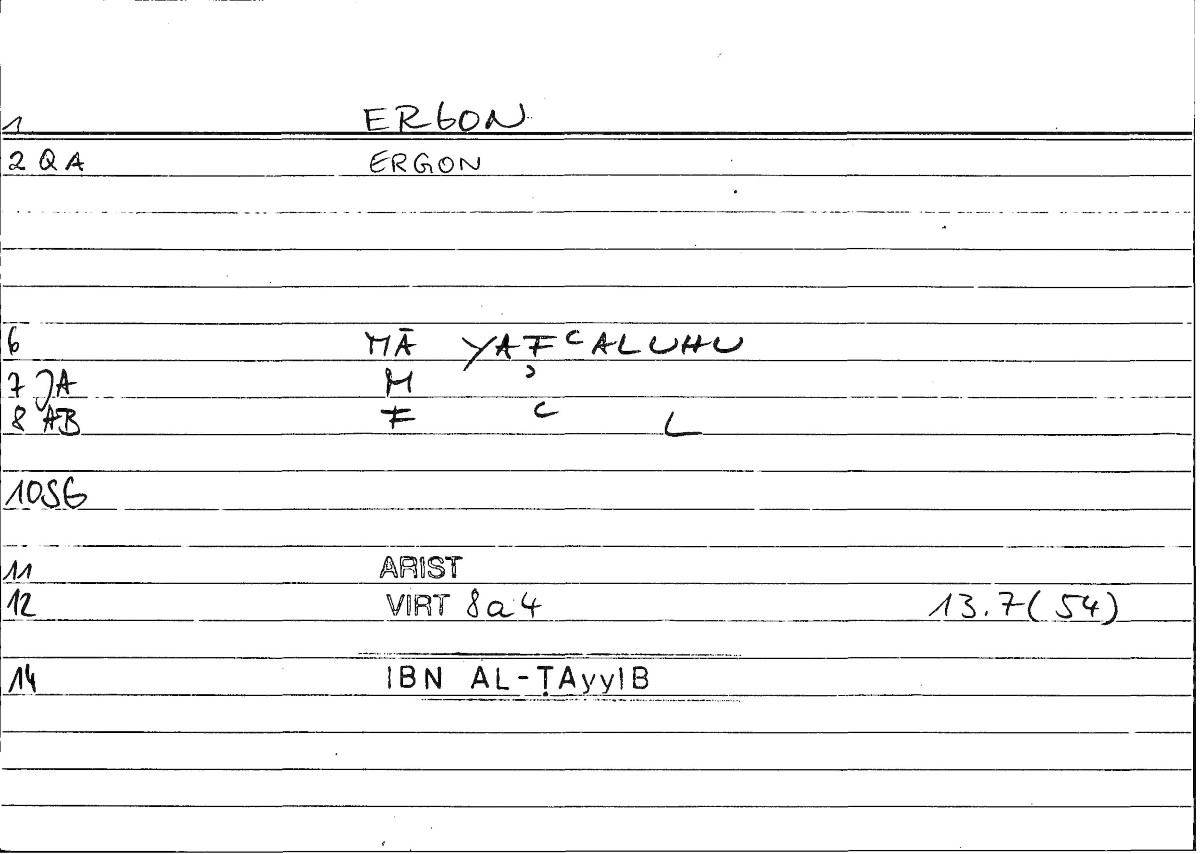 1 ERGON
2 QA ERGON
6 MĀ YAFʿALUHU
7 JA M ʾ
8 AB F ʿ L
10SG
11 ARIST
12 VIRT 8a4 13.7(54)
14 IBN AL-ṬAyyIB